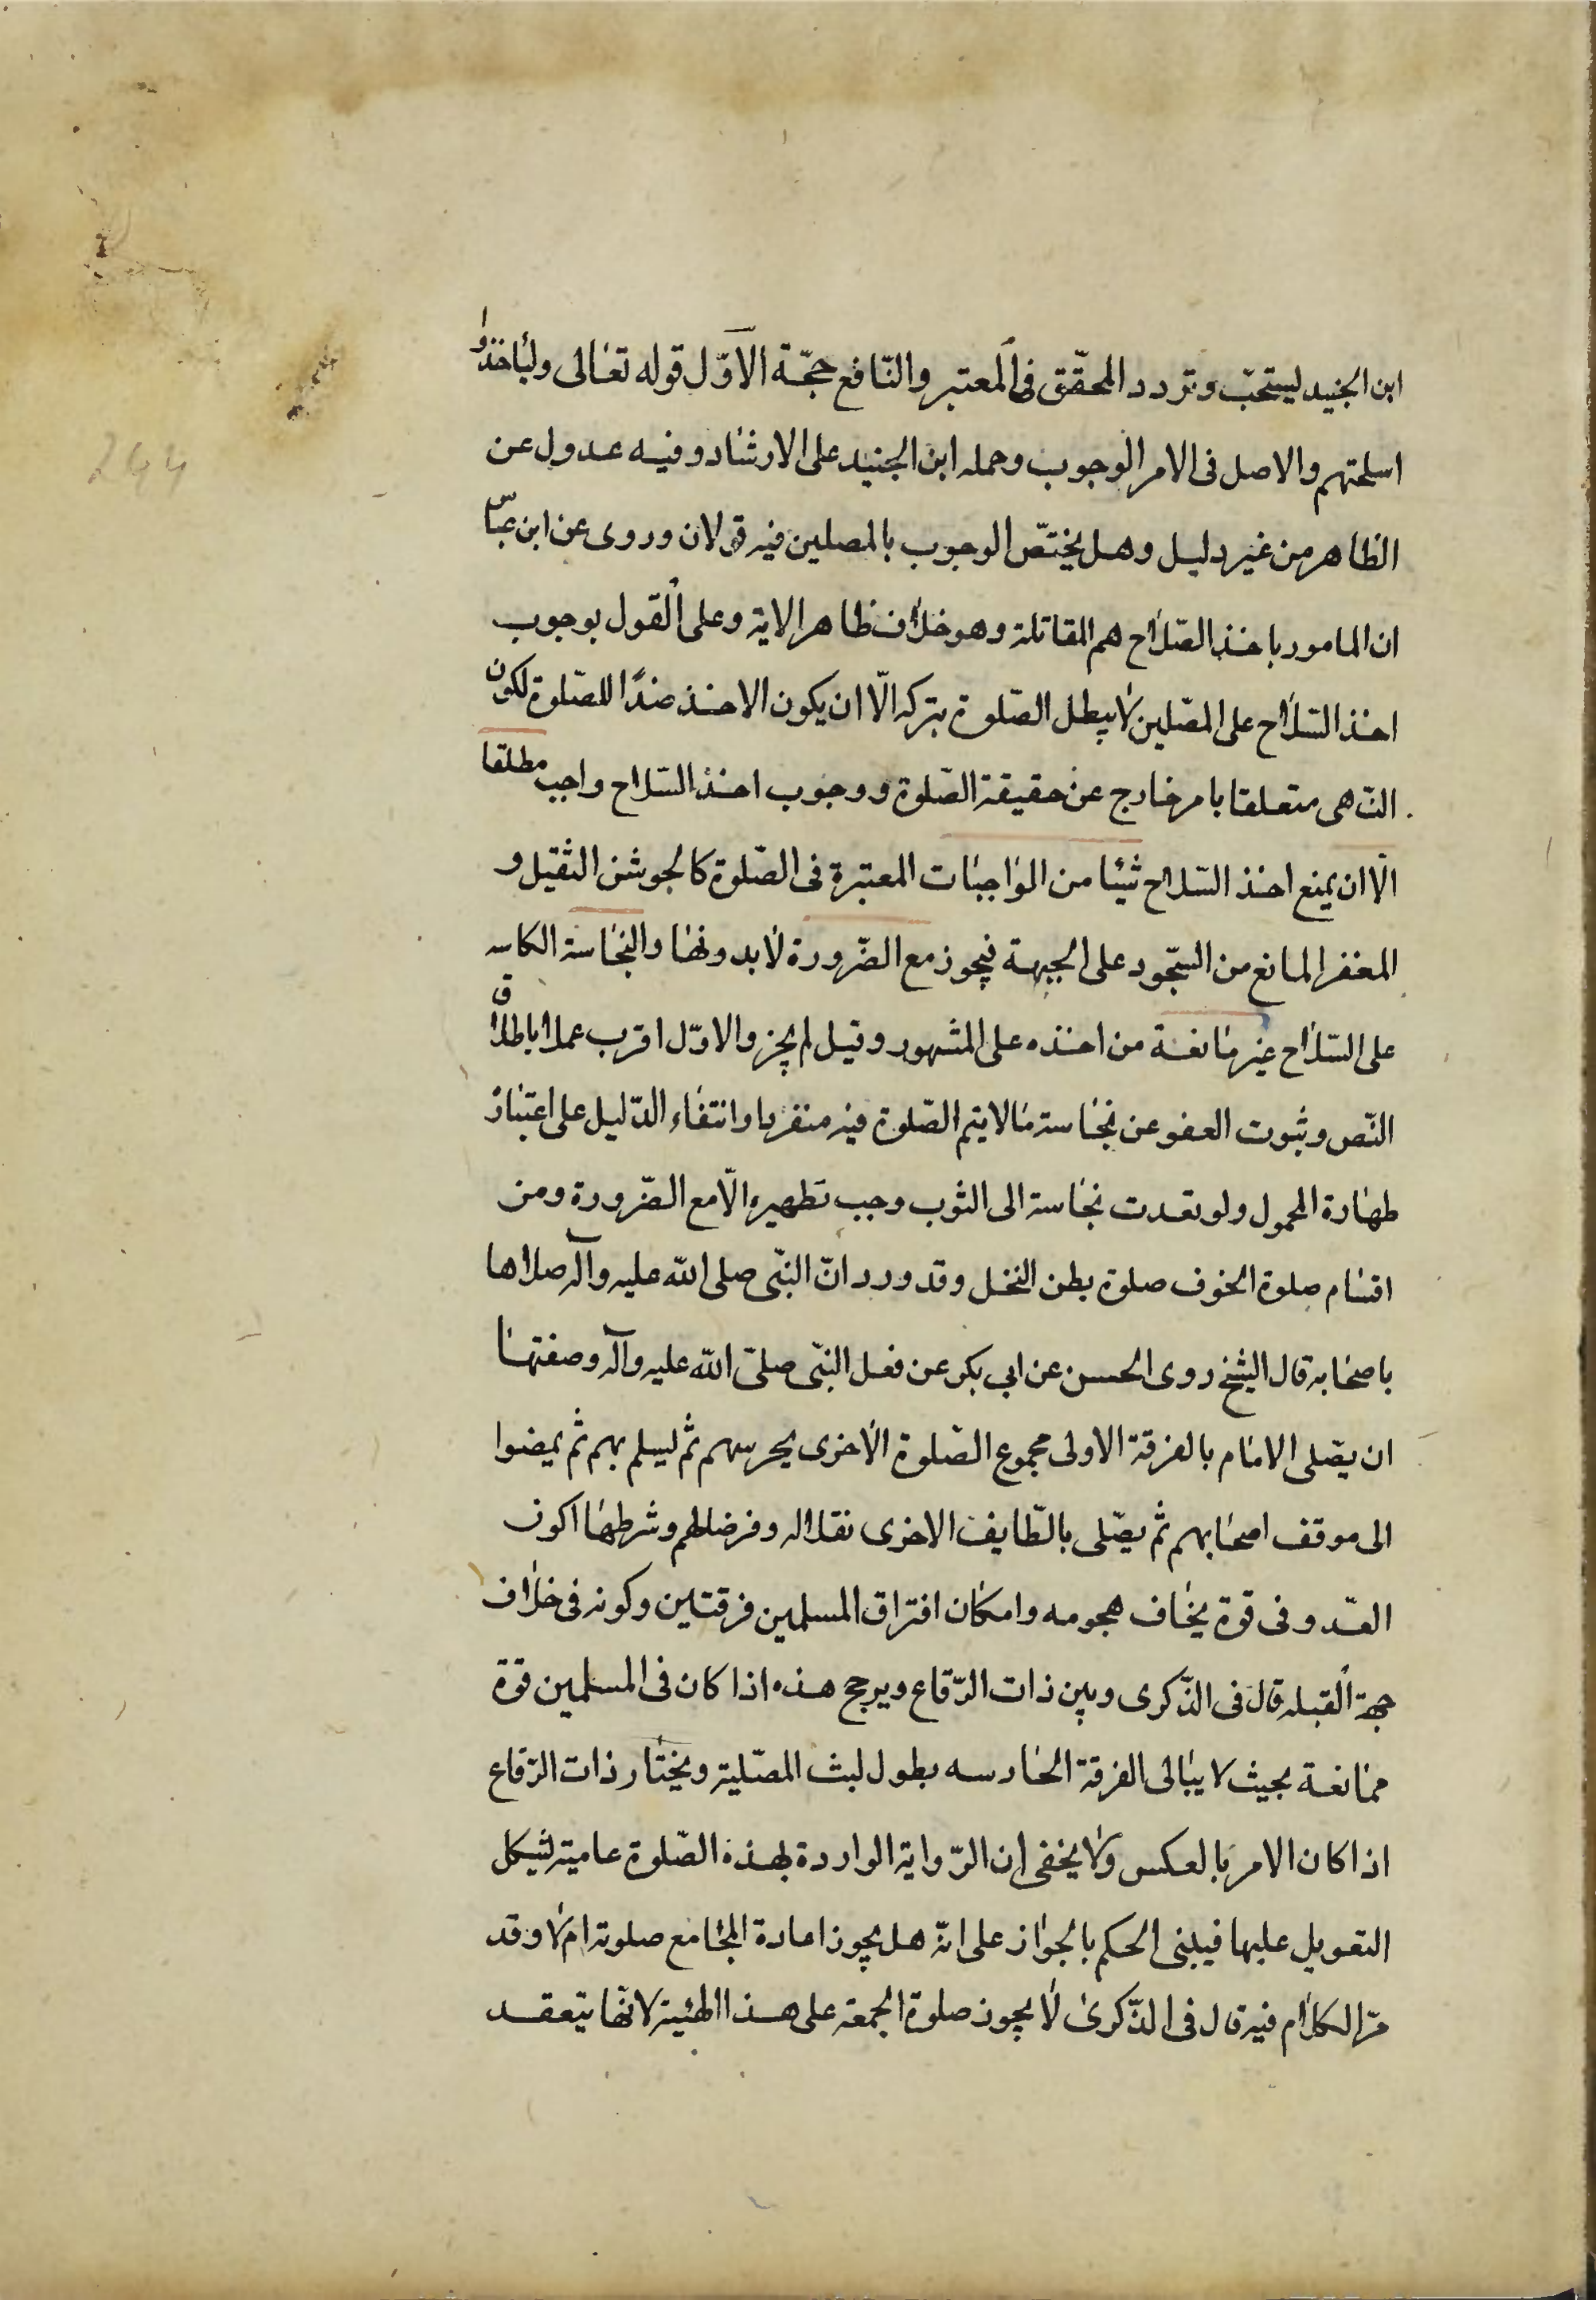 ابن الجنيد ليستحبّ وتردد المحقّق فى المعتبر والنّافع حجّة الاوّل قوله تعالى وليأخذوا
اسلحتهم والاصل فى الامر الوجوب وحمله ابن الجنيد على الارشاد وفيه عدول عن
الظاهر من غير دليل وهل يختصّ الوجوب بالمصلين فيه قولان وروى عن ابن عبّاس
ان المامور باخذ الصّلاح هم المقاتلة وهو خلاف ظاهر الاية وعلى القول بوجوب
اخذ السّلاح على المصّلين لا يبطل الصّلوة بتركه الّا ان يكون الاخذ ضدًا للصّلوة لكون
النّهى متعلقا بامر خارج عن حقيقة الصّلوة ووجوب اخذ السّلاح واجب مطلقا
الّا ان يمنع اخذ السّلاح شيئا من الواجبات المعتبرة فى الصّلوة كالجوشن الثقيل و
المغفر المانع من السّجود على الجبهة فيجوز مع الضّرورة لا بدونها والنجاسة الكاسه
على السّلاح غير مانعة من اخذه على المشهور وقيل لم يجز والاوّل اقرب عملا باطلاق
النّص وثبوت العفو عن نجاسة ما لا يتم الصّلوة فيه منفردا وانتفاء الدّليل على اعتبار
طهارة المحمول ولو تعدت نجاسة الى الثوب وجب تطهيره الّا مع الضّرورة ومن
اقسام صلوة الخوف صلوة بطن النخل وقد ورد انّ النبّى صلى الله عليه وآله صلاها
باصحابه قال الشيخ روى الحسن عن ابى بكر عن فعل النبّى صلىّ الله عليه وآله وصفتها
ان يصّلى الامام بالفرقة الاولى مجموع الصّلوة الاخرى يحرسهم ثم ليسلم بهم ثم يمضوا
الى موقف اصحابهم ثم يصّلى بالطّايفه الاخرى نفلا له وفرضا لهم وشرطها اكون
العّدو فى قوة يخاف هجومه وامكان افتراق المسلمين فرقتين وكونه فى خلاف
جهة القبله قال فى الذّكرى وبين ذات الرّقاع ويرجح هذه اذا كان فى المسلمين قوة
ممانعة بحيث لا يبالى الفرقة الحارسه بطول لبث المصّلية ويختار ذات الرّقاع
اذا كان الامر بالعكس ولا يخفى ان الرّواية الواردة بهذه الصّلوة عامية ليشكل
التعويل عليها فيبنى الحكم بالجواز على انّه هل يجوز اعادة الجامع صلوته ام لا وقد
مرّ الكلام فيه قال فى الذّكرى لا يجوز صلوة الجمعة على هذا الهيئة لانّها يتعقد